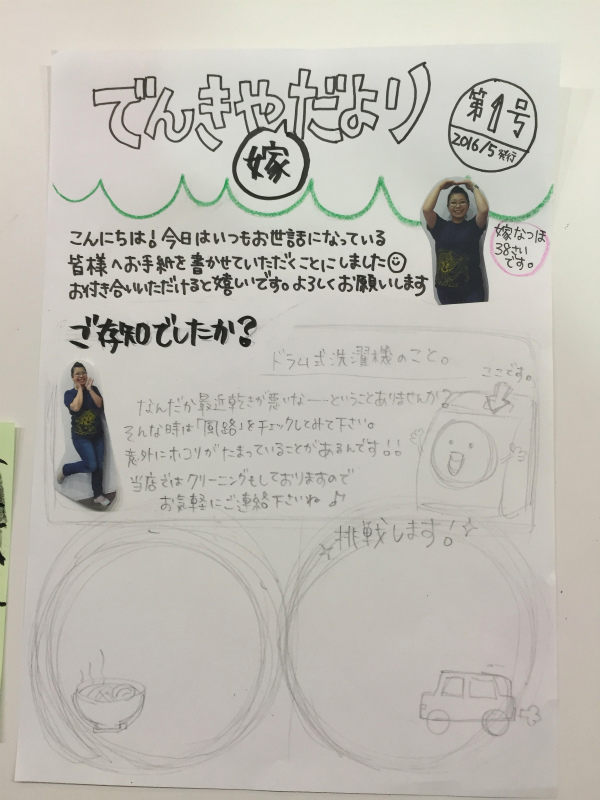 でんきやだより
嫁
第1号
2016/5発行
こんにちは!今日はいつもお世話になっている
皆様へお手紙を書かせていただくことにしました
お付き合いいただけると嬉しいです。よろしくお願いします
嫁なつほ
38さい
です。
ご存知でしたか?
ドラム式洗濯機のこと。
ここです。
なんだか最近乾きが悪いな——ということありませんか?
そんな時は「風路」をチェックしてみて下さい。
意外にホコリがたまっていることがあるんです!!
当店ではクリーニングもしておりますので
お気軽にご連絡下さいね♪
挑戦します!